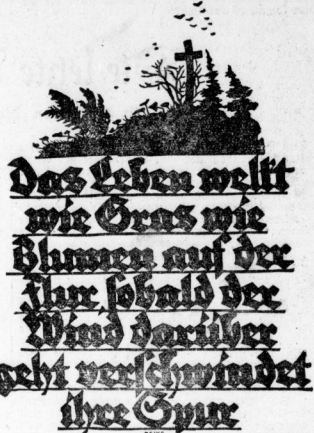 Das Leben welkt
wie Gras wie
Blumen auf der
Flur sobald der
Wind darüber
geht verschwindet
ihre Spur